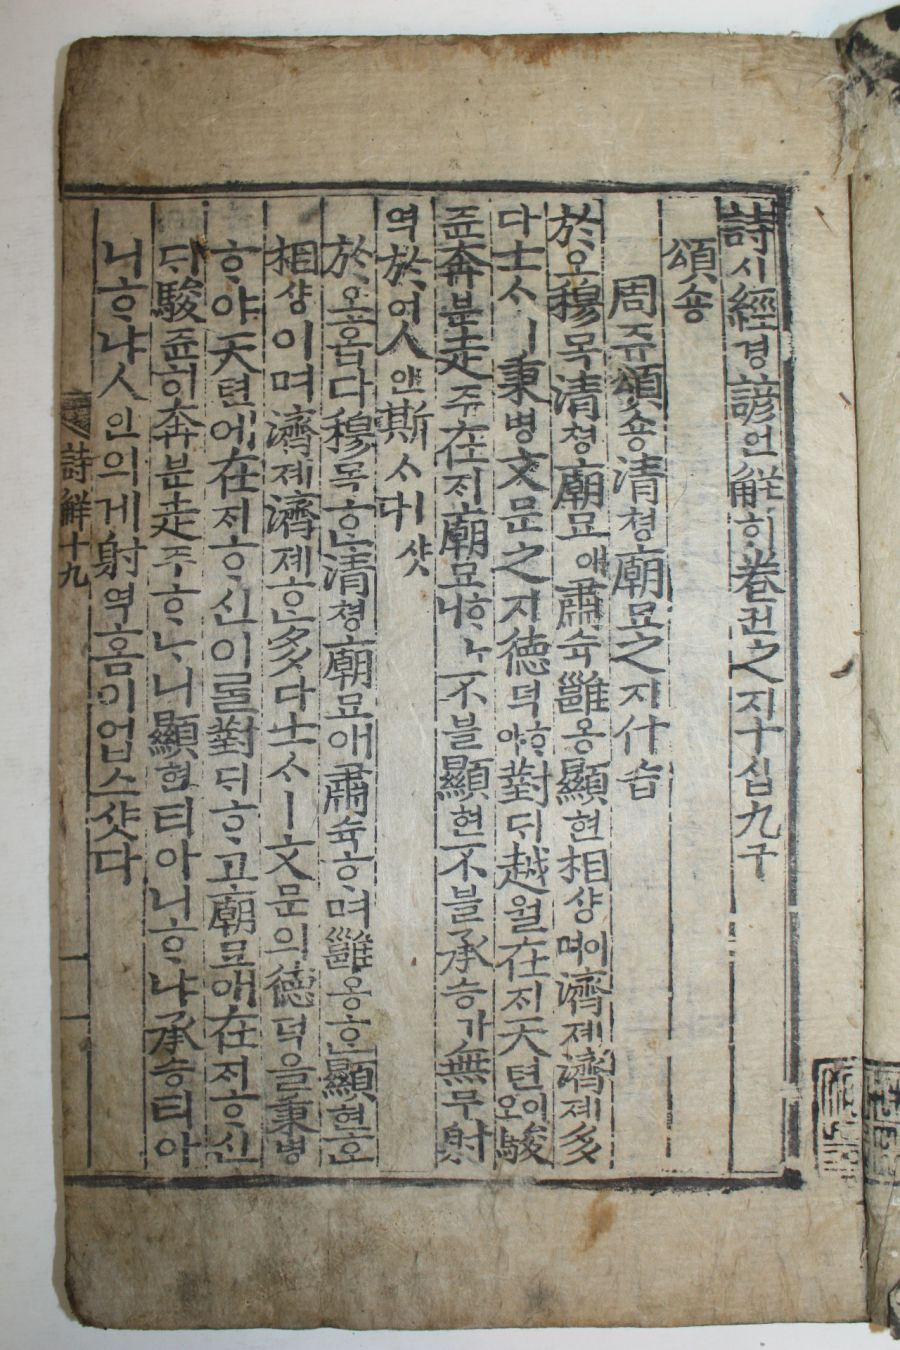 詩시經경諺언解ᄒᆡ卷권之지十십九구
頌숑
周쥬頌숑淸쳥廟묘之지什습
於오穆목淸쳥廟묘애肅슉雝옹顯현相샹이며濟졔濟졔多
다士ᄉᆞㅣ秉병文문之지德덕야ᄒᆞ對ᄃᆡ越월在ᄌᆡ天텬이오駿
쥰奔분走주在ᄌᆡ廟묘ᄒᆞᄂᆞ니不블顯현不블承승가無무射
역於어人인斯ᄉᆞ이샷다
於오홉다穆목ᄒᆞᆫ淸쳥廟묘애肅슉ᄒᆞ며雝옹ᄒᆞᆫ顯현ᄒᆞᆫ
相샹이며濟졔濟졔ᄒᆞᆫ多다士ᄉᆞㅣ文문의德덕을秉병
ᄒᆞ야天텬에在ᄌᆡᄒᆞ신이ᄅᆞᆯ對ᄃᆡᄒᆞ고廟묘애在ᄌᆡᄒᆞ신
ᄃᆡ駿쥰히奔분走주ᄒᆞᄂᆞ니顯현티아니ᄒᆞ냐承승티아
니ᄒᆞ냐人인의게射역홈이업스샷다
詩解十九